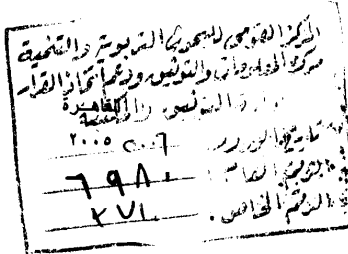 المركز القومى للبحوث التربوية والتنمية
مركز المعلومات والتوثيق ودعم اتخاذ القرار
إدارة التوثيق والمكتبة القاهرة
تاريخ الورود ٢٠٠٥
الرقم العام : ٦٩٨٠
الرقم الخاص :